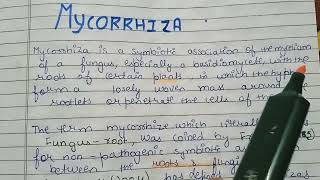 MYCORRHIZA
Mycorrhiza is a symbiotic association of the mycelium
of a fungus, especially a basidiomycete, with the
roots of certain plants, in which the hyphae
form a losely woven mass around the
rootlets or penetrate the cells of the
The term mycorrhize which literally
Fungus-root, was coined by
for non-pathogenic symbiotic
between the roots fungi
has defined